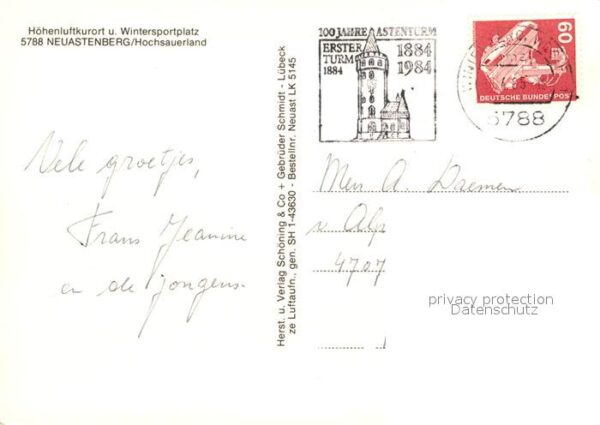 Höhenluftkurort u. Wintersportplatz
5788 NEUASTENBERG/Hochsauerland
Vele groetjes,
Frans Jeanine
en de jongens.
Herst. u. Verlag Schöning & Co + Gebrüder Schmidt - Lübeck
ze Luftaufn., gen. SH 1-43630 - Bestellnr. Neuast LK 5145
100 JAHRE ASTENTURM
ERSTER
TURM
1884
1884
1984
60
DEUTSCHE BUNDESPOST
5788
A.
v Alp
4707
privacy protection
Datenschutz